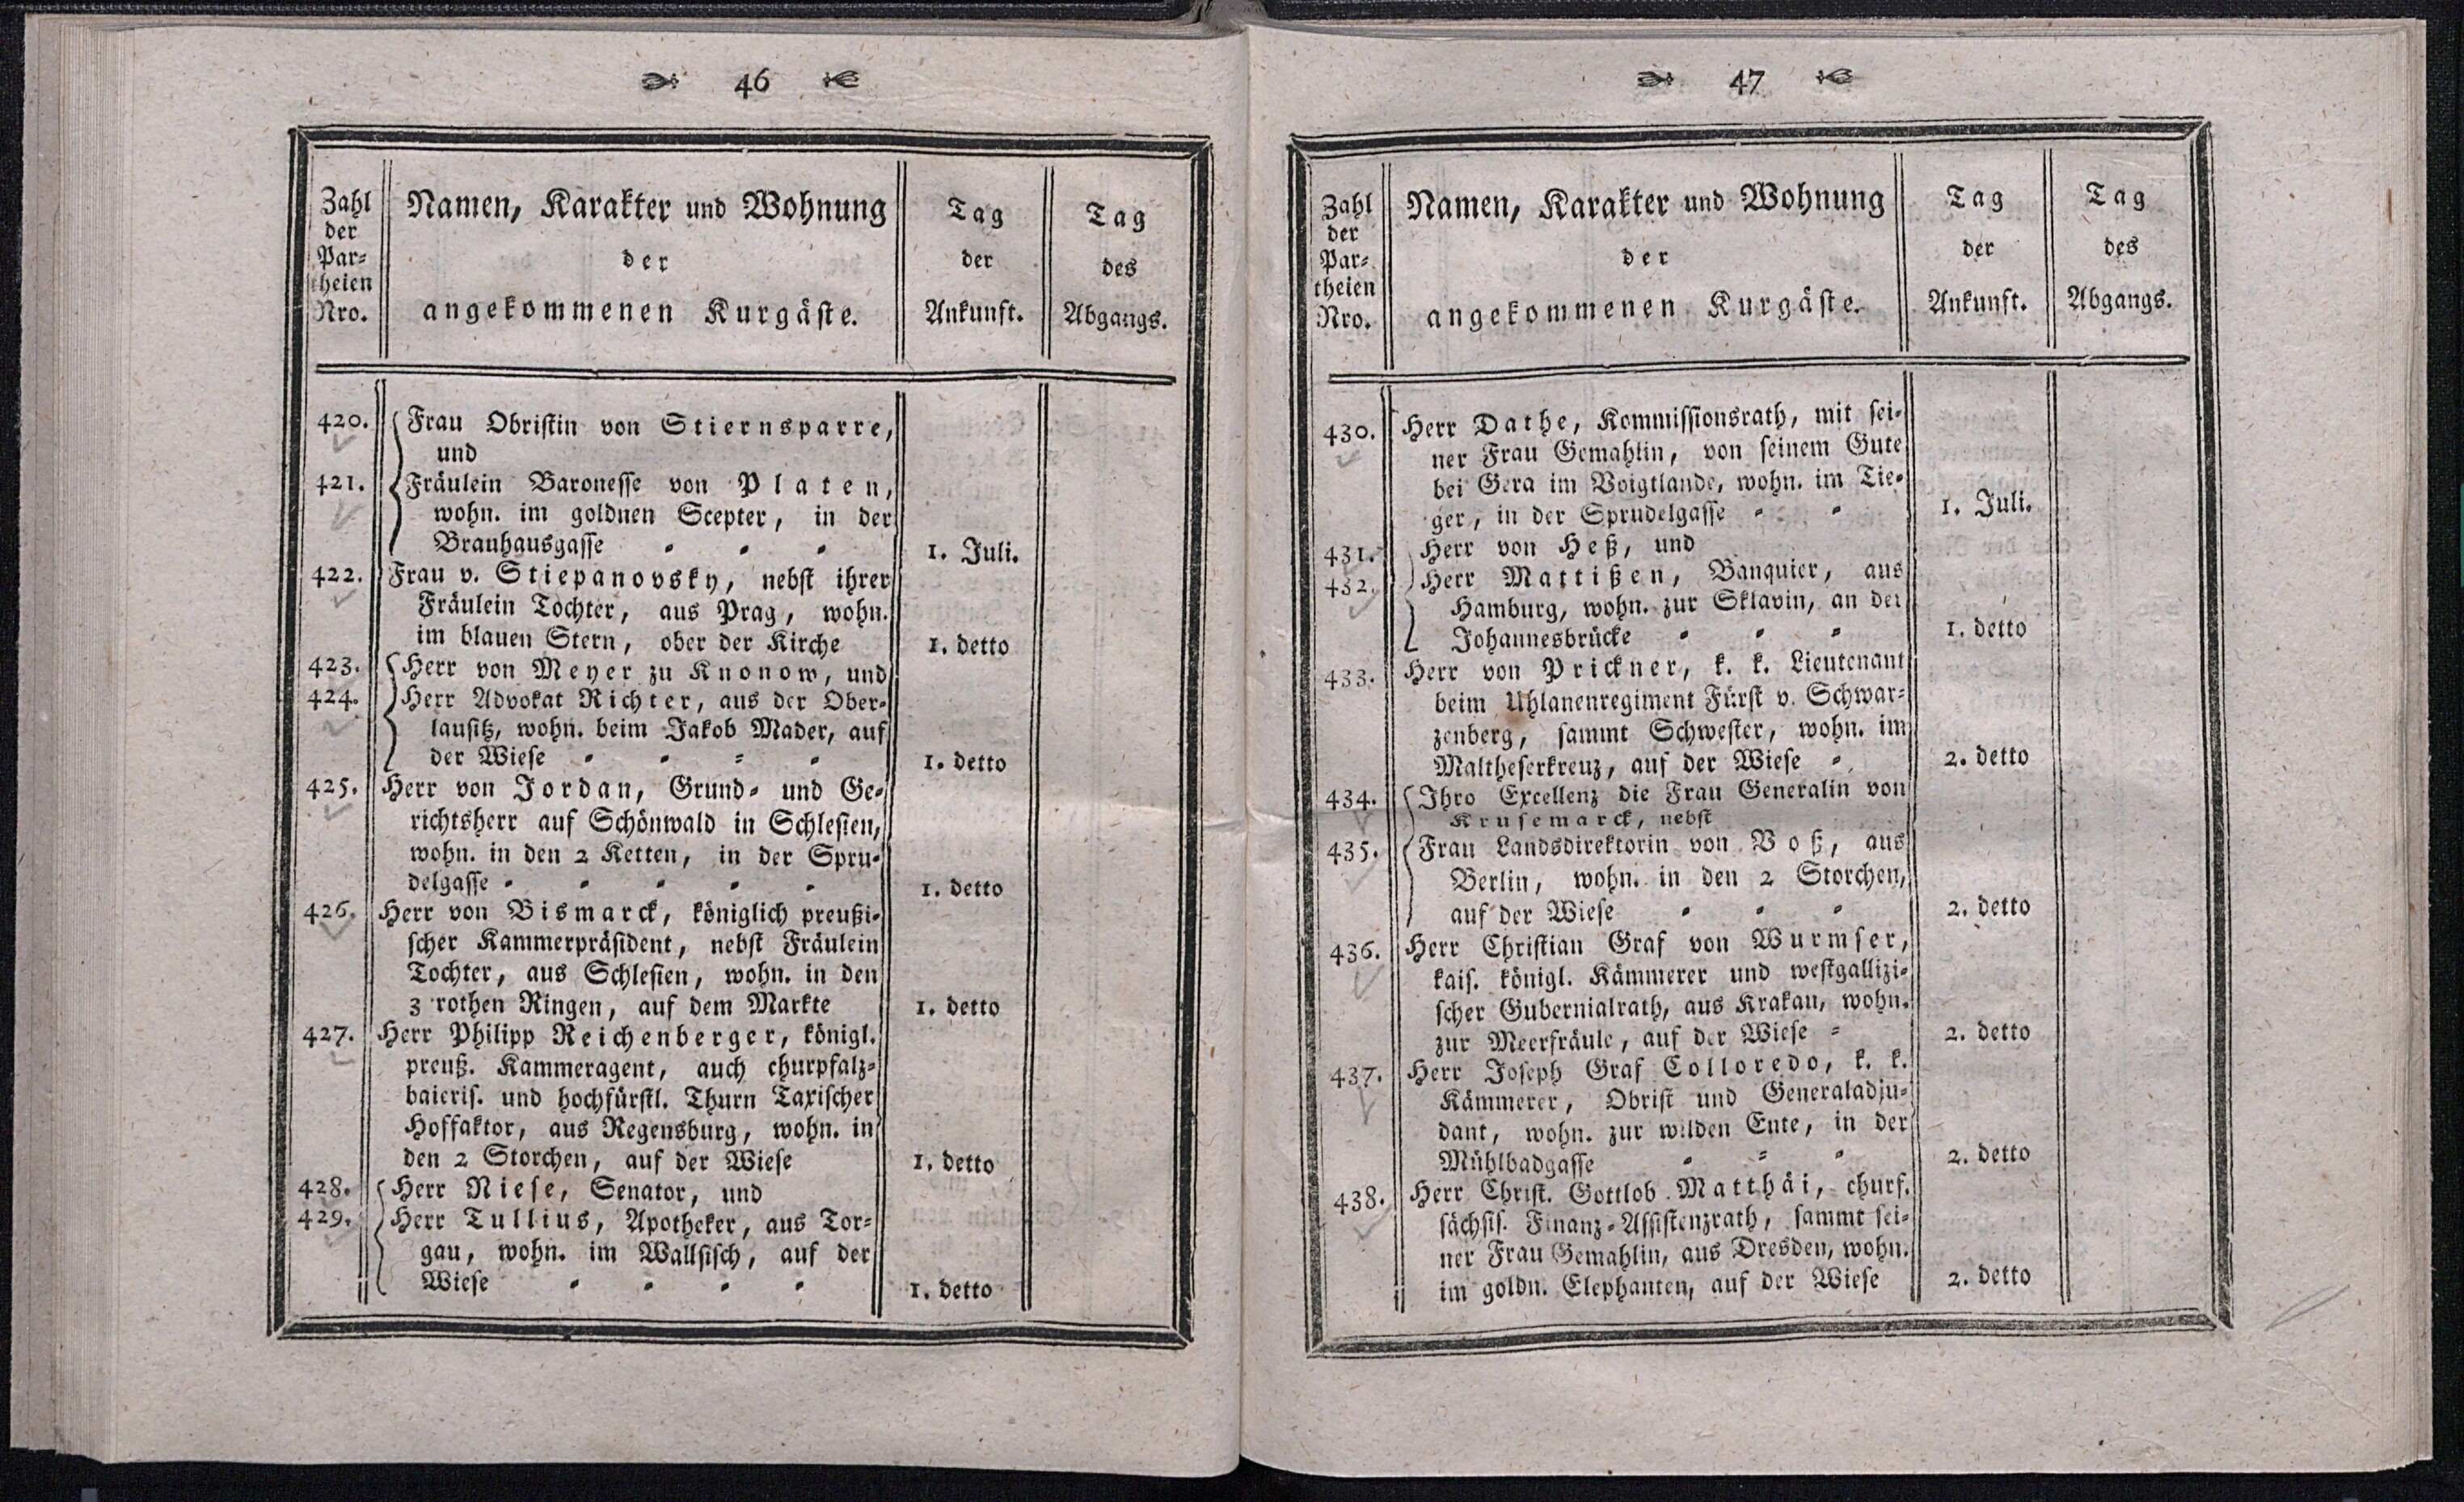 46
Zahl
der
Par-
theien
Nro.
Namen, Karakter und Wohnung
der
angekommenen Kurgäste.
Tag
der
Ankunft.
Tag
des
Abgangs.
420. Frau Obristin von Stiernsparre,
und
421. Fräulein Baronesse von Platen,
wohn. im goldnen Scepter, in der
Brauhausgasse 1. Juli.
422. Frau v. Stiepanovsky, nebst ihrer
Fräulein Tochter, aus Prag, wohn.
im blauen Stern, ober der Kirche 1. detto
423. Herr von Meyer zu Knonow, und
424. Herr Advokat Richter, aus der Ober-
lausitz, wohn. beim Jakob Mader, auf
der Wiese 1. detto
425. Herr von Jordan, Grund- und Ge-
richtsherr auf Schönwald in Schlesien,
wohn. in den 2 Ketten, in der Spru-
delgasse 1. detto
426. Herr von Bismarck, königlich preußi-
scher Kammerpräsident, nebst Fräulein
Tochter, aus Schlesien, wohn. in den
3 rothen Ringen, auf dem Markte 1. detto
427. Herr Philipp Reichenberger, königl.
preuß. Kammeragent, auch churpfalz-
baieris. und hochfürstl. Thurn Taxischer
Hoffaktor, aus Regensburg, wohn. in
den 2 Storchen, auf der Wiese 1. detto
428. Herr Niese, Senator, und
429. Herr Tullius, Apotheker, aus Tor-
gau, wohn. im Wallfisch, auf der
Wiese 1. detto
47
Zahl
der
Par-
theien
Nro.
Namen, Karakter und Wohnung
der
angekommenen Kurgäste.
Tag
der
Ankunft.
Tag
des
Abgangs.
430. Herr Dathe, Kommissionsrath, mit sei-
ner Frau Gemahlin, von seinem Gute
bei Gera im Voigtlande, wohn. im Tie-
ger, in der Sprudelgasse 1. Juli.
431. Herr von Heß, und
432. Herr Mattißen, Banquier, aus
Hamburg, wohn. zur Sklavin, an der
Johannesbrücke 1. detto
433. Herr von Prickner, k. k. Lieutenant
beim Uhlanenregiment Fürst v. Schwar-
zenberg, sammt Schwester, wohn. im
Maltheserkreuz, auf der Wiese 2. detto
434. Ihro Excellenz die Frau Generalin von
Krusemarck, nebst
435. Frau Landsdirektorin von Voß, aus
Berlin, wohn. in den 2 Storchen,
auf der Wiese 2. detto
436. Herr Christian Graf von Wurmser,
kais. königl. Kämmerer und westgallizi-
scher Gubernialrath, aus Krakau, wohn.
zur Meerfräule, auf der Wiese 2. detto
437. Herr Joseph Graf Colloredo, k. k.
Kämmerer, Obrist und Generaladju-
dant, wohn. zur wilden Ente, in der
Mühlbadgasse 2. detto
438. Herr Christ. Gottlob Matthäi, churf.
sächsis. Finanz-Assistenzrath, sammt sei-
ner Frau Gemahlin, aus Dresden, wohn.
im goldn. Elephanten, auf der Wiese 2. detto